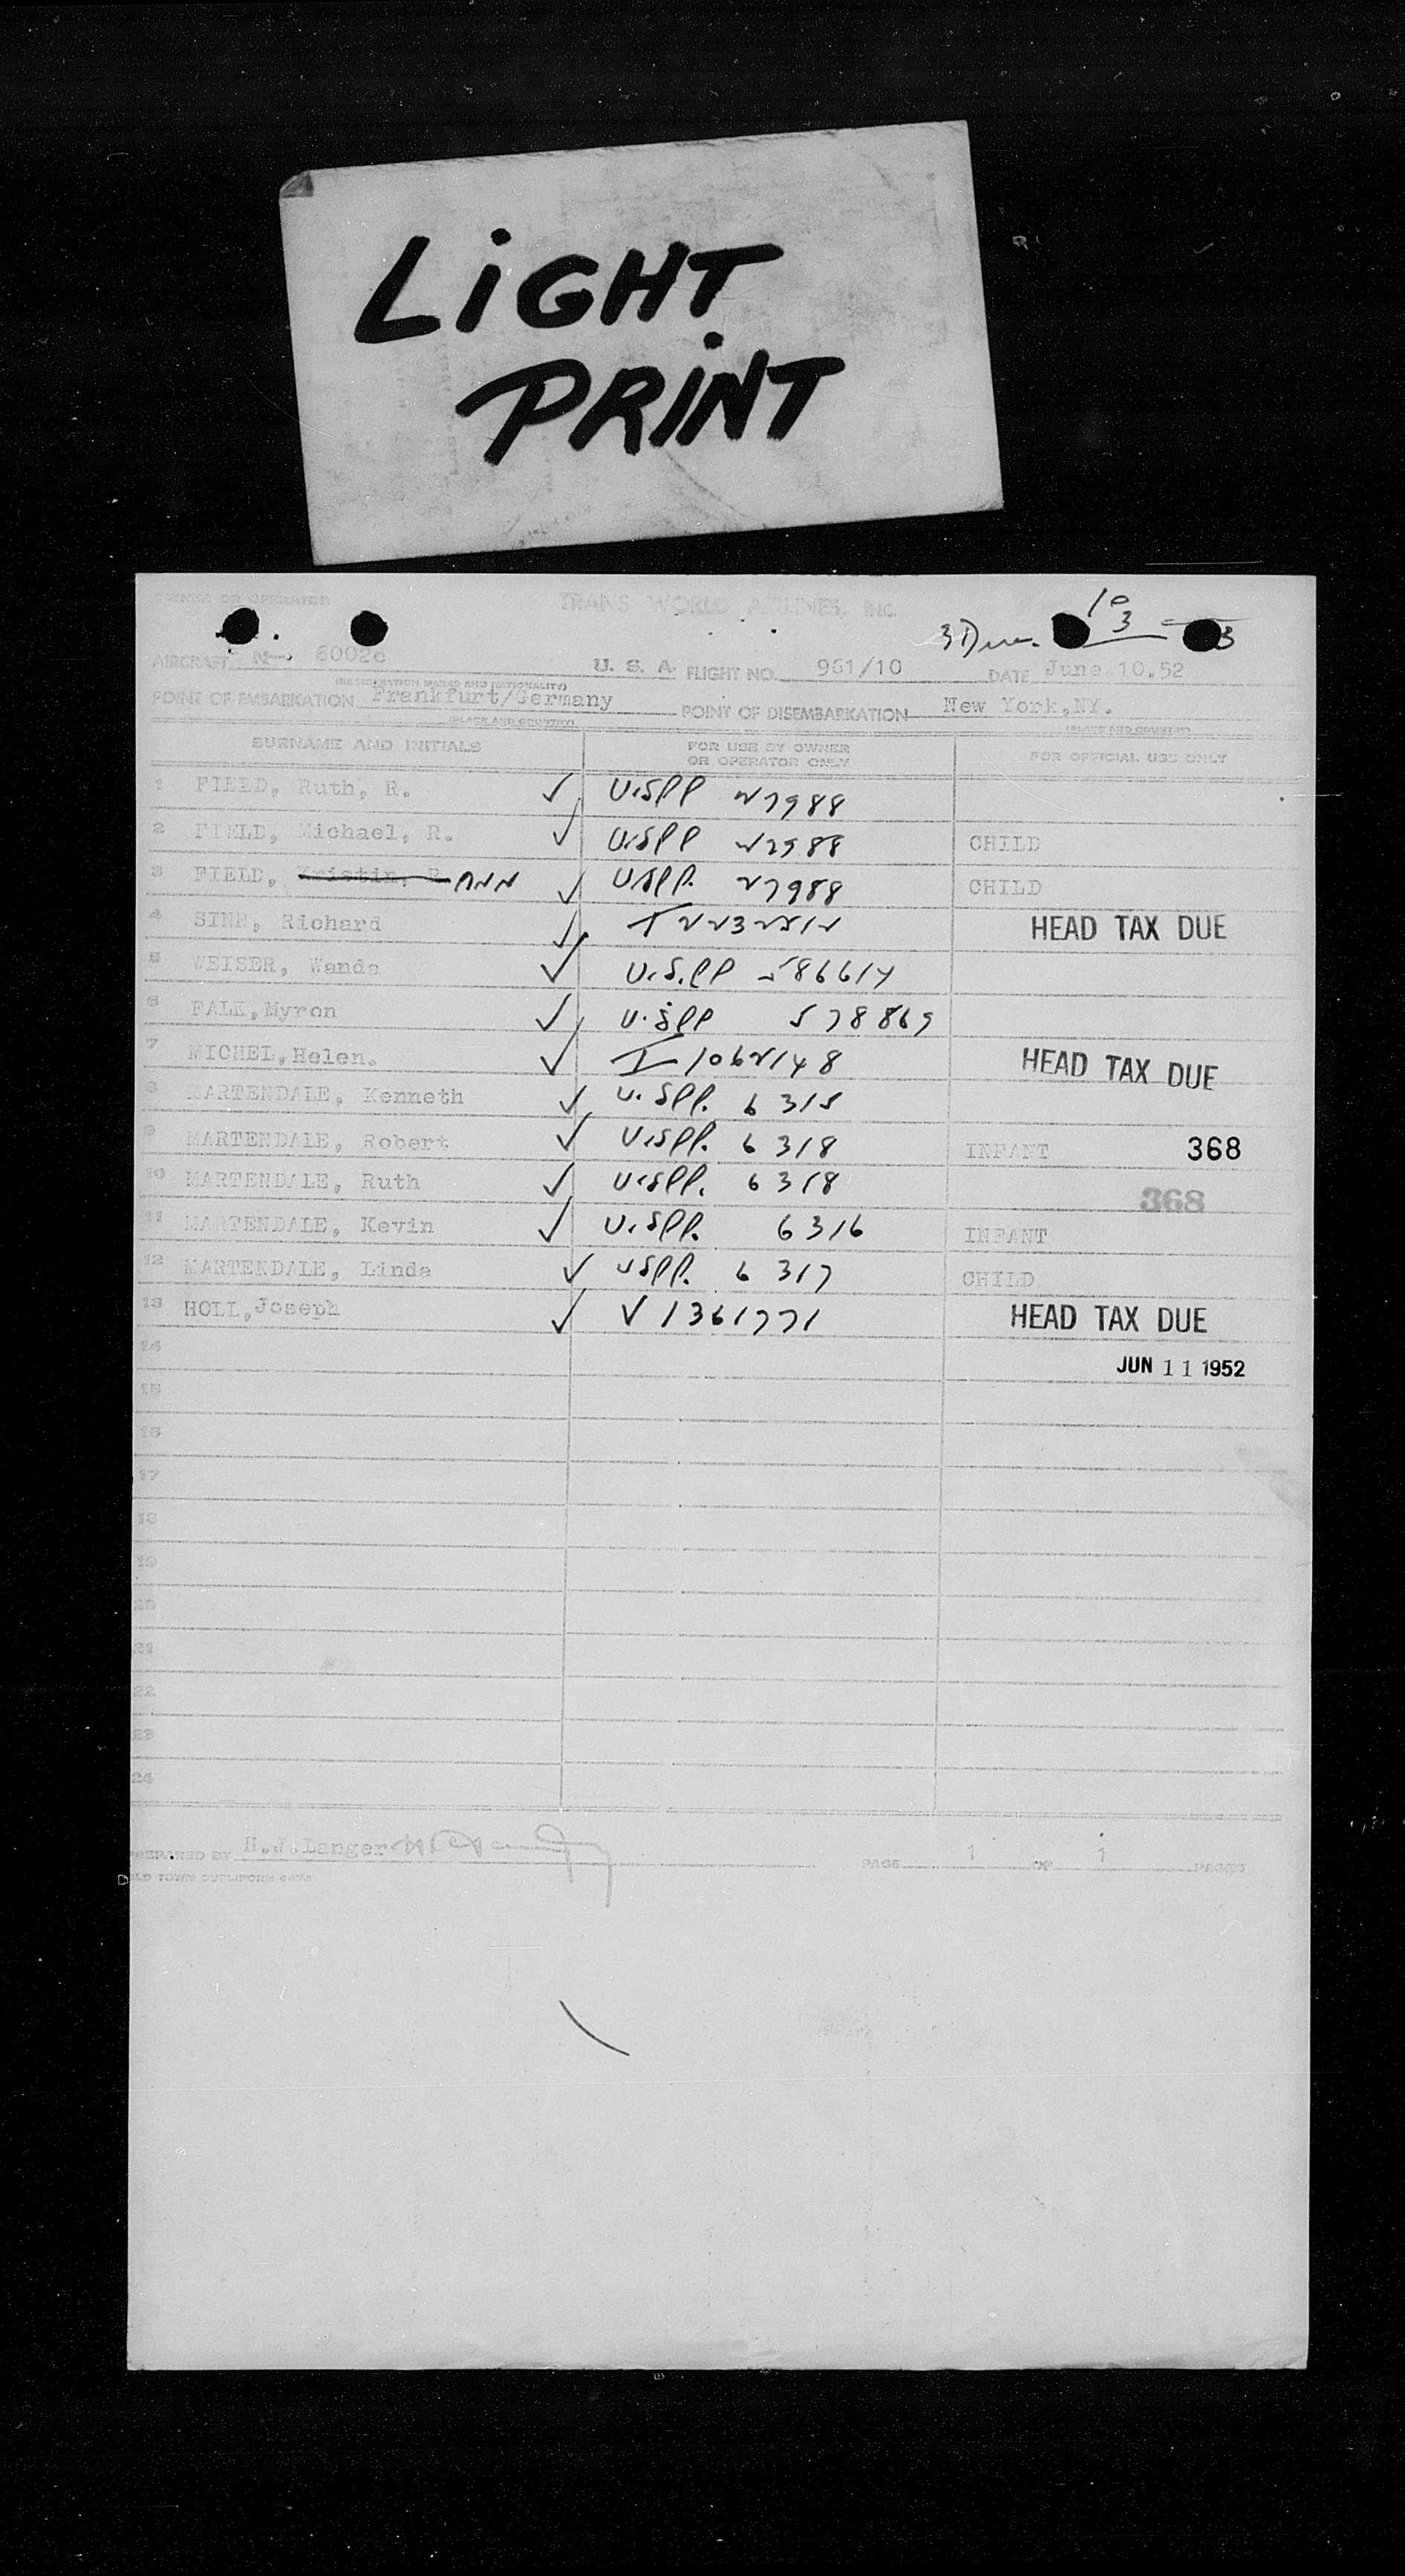 LiGHT
PRiNT
OWNER OR OPERATOR TRANS WORLD AIRLINES, INC.
10
3
AIRCRAFT N- 6002c U. S. A. FLIGHT NO. 961/10 DATE June.10.52
(REGISTRATION MARKS AND NATIONALITY)
POINT OF EMBARKATION Frankfurt/Germany POINT OF DISEMBARKATION New York,NY.
(PLACE AND COUNTRY) (PLACE AND COUNTRY)
SURNAME AND INITIALS FOR USE BY OWNER OR OPERATOR ONLY FOR OFFICIAL USE ONLY
1 FIELD, Ruth, R. ✓ U.SPP 27988
2 FIELD, Michael, R. ✓ U.SPP 27988 CHILD
3 FIELD, Kristin, R. ANN ✓ USPP. 27988 CHILD
4 SINN, Richard ✓ HEAD TAX DUE
5 WEISER, Wanda ✓ U.S.PP 586614
6 FALK,Myron ✓ U.SPP 578869
7 MICHEL,Helen. ✓ I-1062148 HEAD TAX DUE
8 MARTENDALE, Kenneth ✓ U.SPP. 6315
9 MARTENDALE, Robert ✓ U.SPP. 6318 INFANT 368
10 MARTENDALE, Ruth ✓ U.SPP. 6318 368
11 MARTENDALE, Kevin ✓ U.SPP. 6316 INFANT
12 MARTENDALE, Linda ✓ USPP. 6317 CHILD
13 HOLL,Joseph ✓ V1361771 HEAD TAX DUE
14 JUN 11 1952
15
16
17
18
19
20
21
22
23
24
PREPARED BY H.J.Langer PAGE 1 OF 1 PAGES
OLD TOWN DUPLIFORM